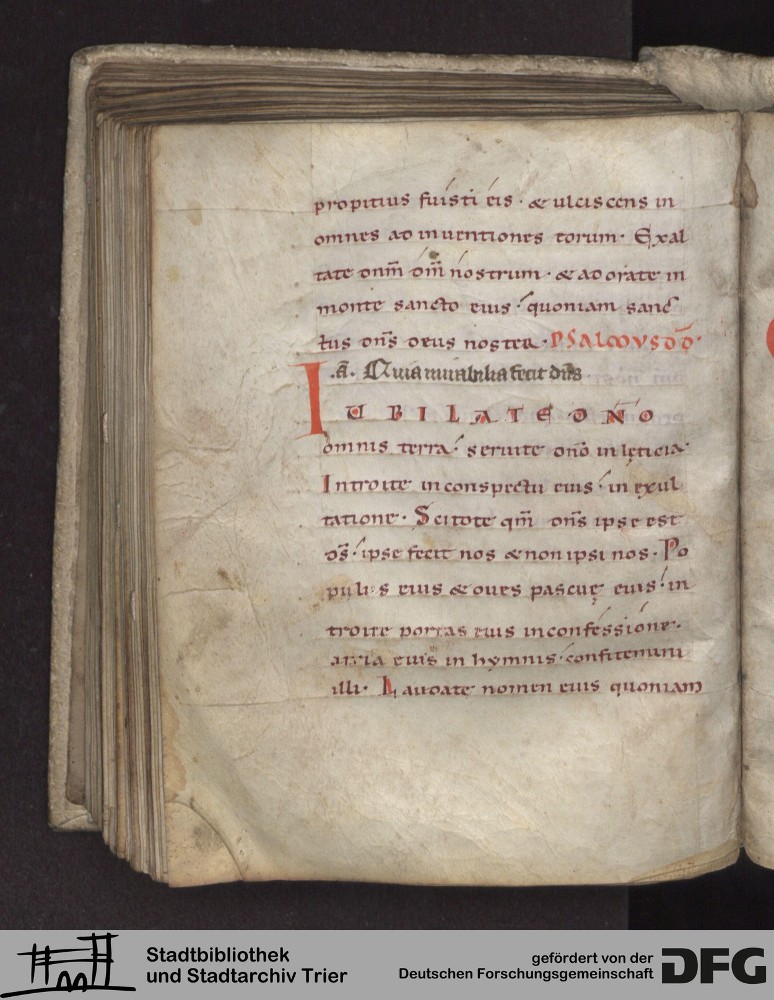 propitius fuisti eis · & ulciscens in
omnes adinuentiones eorum · Exal
tate dnm̄ dm̄ nostrum · & adorate in
monte sancto eius · quoniam sanc
tus dn̄s deus noster · PSALMUS DD·
.a̅. Quia mirabilia fecit dn̄s
IUBILATE DNŌ
omnis terra · seruite dnō in lęticia·
Introite in conspectu eius · in exul
tatione · Scitote qm̄ dn̄s ipse est
ds̄ · ipse fecit nos & non ipsi nos · Po
pulus eius & oues pascuę eius · in
troite portas eius in confessione ·
atria eius in hymnis · confitemini
illi · Laudate nomen eius quoniam
Stadtbibliothek
und Stadtarchiv Trier
gefördert von der
Deutschen Forschungsgemeinschaft
DFG